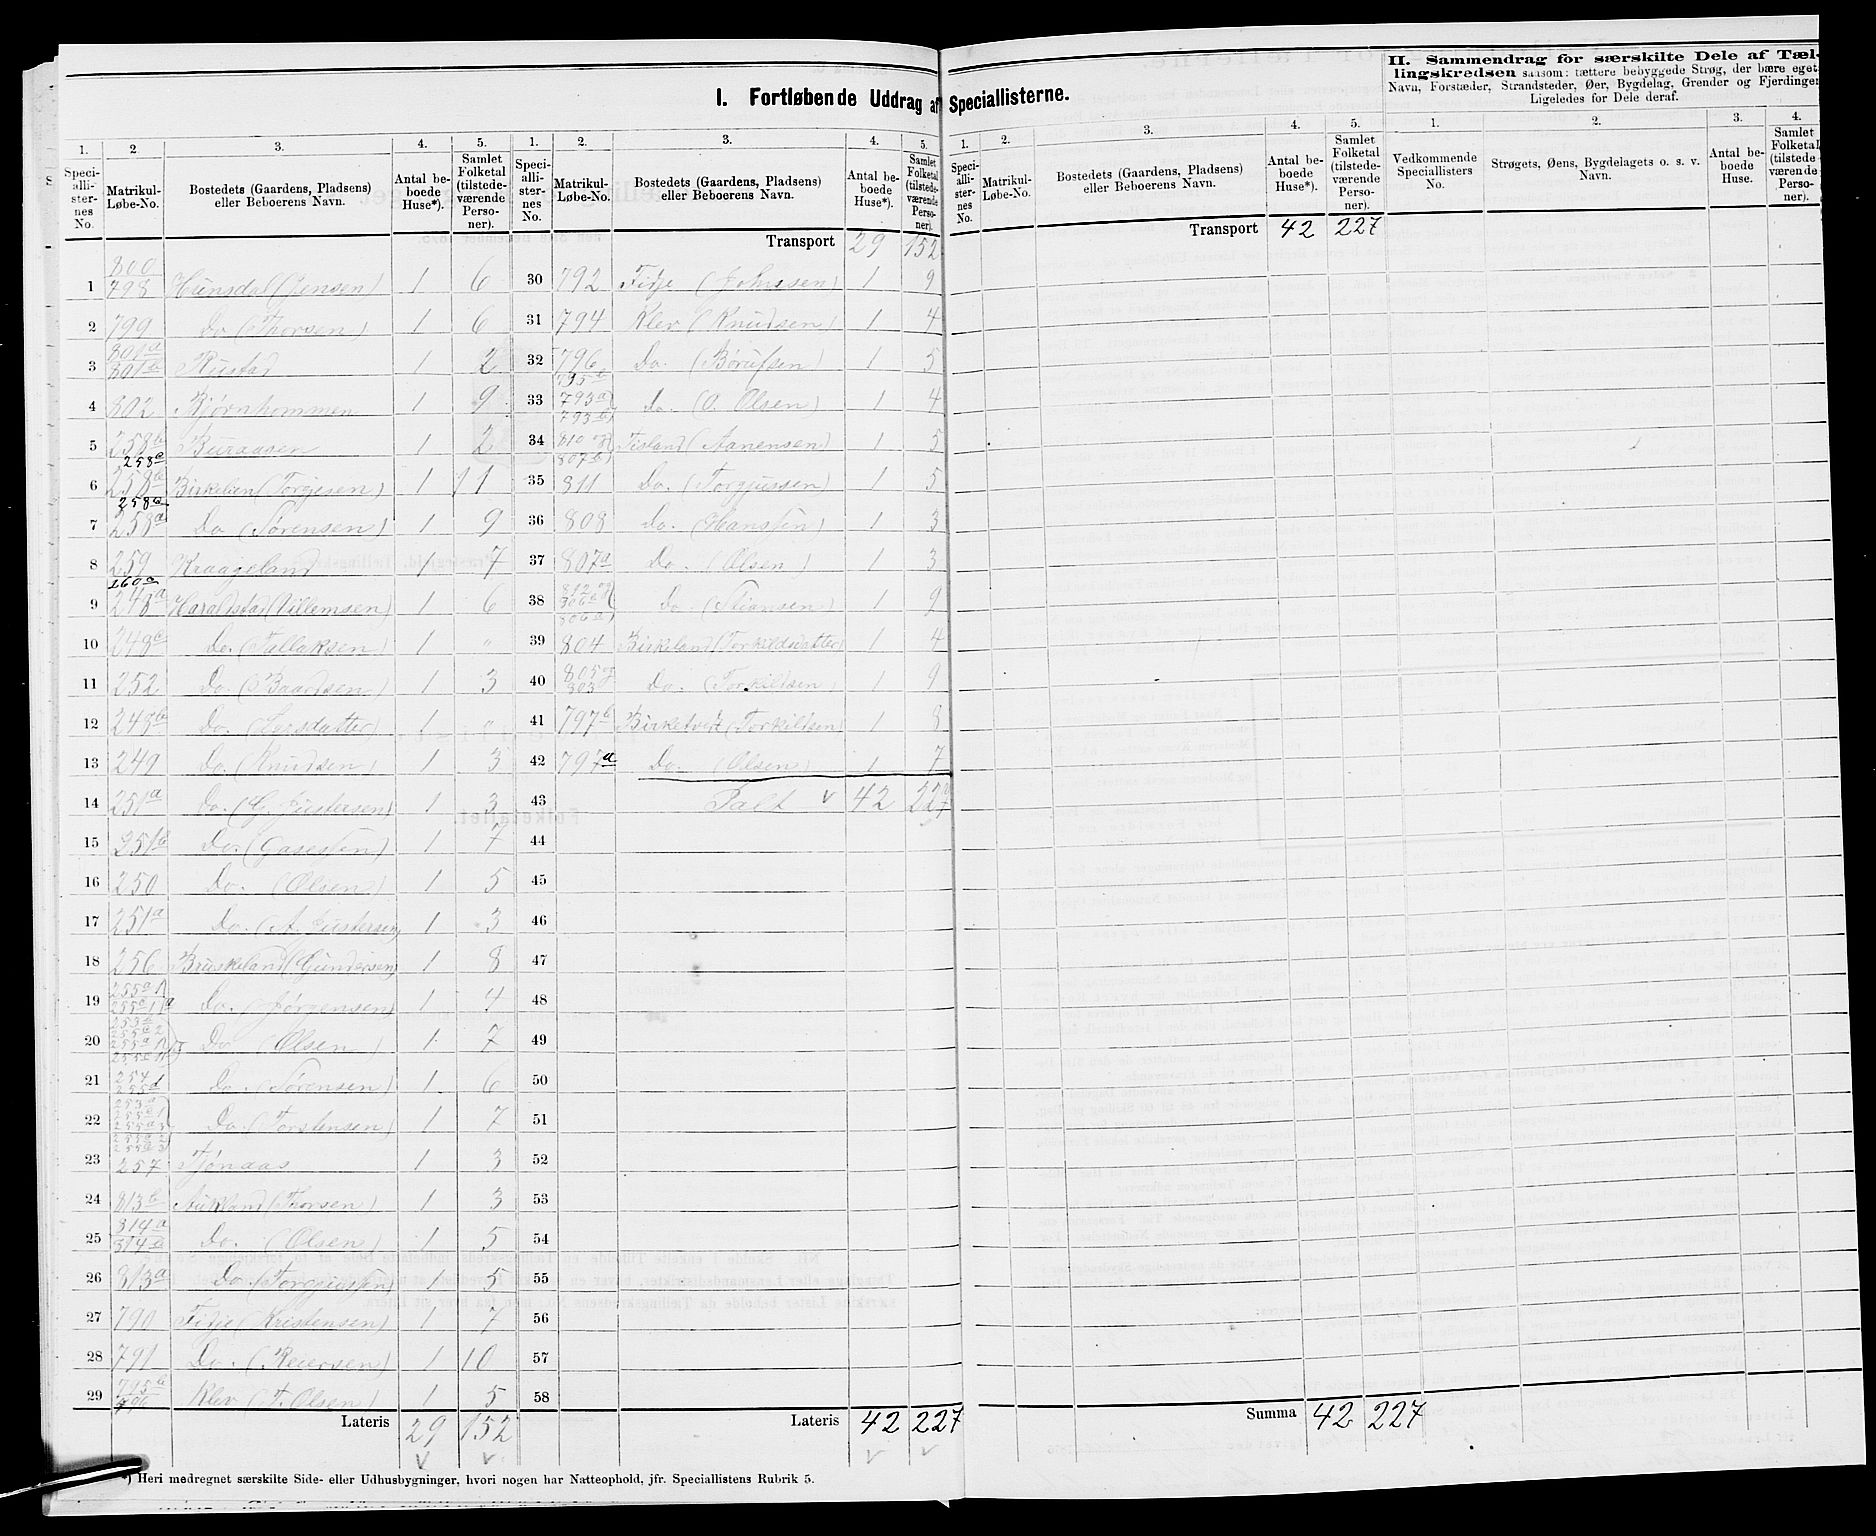 I. Fortløbende Uddrag af Speciallisterne.
II. Sammendrag for særskilte Dele af Tællingskredsen saasom: tættere bebyggede Strøg, der bære eget
Navn, Forstæder, Strandsteder, Øer, Bygdelag, Grender og Fjerdinger
Ligeledes for Dele deraf.
1. 2 3. 4. 5. 1. 2. 3. 4. 5.
Speciallisternes No. Matrikul-Løbe-No. Bostedets (Gaardens, Pladsens) eller Beboerens Navn. Antal beboede Huse*). Samlet Folketal (tilstedeværende Personer).
Speciallisternes No. Matrikul-Løbe-No. Bostedets (Gaardens, Pladsens) eller Beboerens Navn. Antal beboede Huse*). Samlet Folketal (tilstedeværende Personer).
800
1 798 Hunsdal (Jensen) 1 6
2 799 Do (Thorsen) 1 6
801a
3 801b Rustad 1 2
4 802 Bjørnhommen 1 9
5 258b Buraasen 1 2
258c
6 258b Birkelien (Torgjesen) 1 11
258b
7 258a Do (Sørensen) 1 9
8 259 Kraageland 1 7
260a
9 248a Haraldstad (Villemsen) 1 6
10 248c Do. (Tellaksen) 1 "
11 252 Do (Baardsen) 1 3
12 248b Do. (Larsdatter) 1 "
13 249 Do. (Knudsen) 1 3
14 251a Do. (G. Gustersen) 1 3
15 251b Do. (Gasessen) 1 7
16 250 Do. (Olsen) 1 5
17 251a Do. (A. Gustersen) 1 3
18 256 Bruskeland (Gundersen) 1 8
19 Do. (Jørgensen) 1 4
20 Do (Olsen) 1 7
254
21 255d Do. (Sørensen) 1 6
22 Do. (Torstensen) 1 7
23 257 Tjønaas 1 3
24 813b Aukland (Thorsen) 1 3
814a
25 814b Do. (Olsen) 1 5
26 813a Do. (Torgjussen) 1 5
27 790 Fidje (Kristensen) 1 7
28 791 Do. (Reiersen) 1 10
795b
29 796 Klev (T. Olsen) 1 5
Lateris 29 152
Transport 29 152
30 792 Fidje (Johnsen) 1 9
31 794 Klev (Knudsen) 1 4
32 796 Do. (Børufsen 1 5
795b
33 793a Do. (O. Olsen) 1 4
793b
34 810 og Fisland (Aanensen) 1 5
807b
35 811 Do. (Torgjussen) 1 5
36 808 Do. (Hanssen) 1 3
37 807a Do. (Olsen) 1 3
38 812 og Do. (Stiansen) 1 9
806a
39 804 Birkeland (Torkildsdatter) 1 4
40 805 og 803 Do. (Torkildsen) 1 9
41 797b Birketveit (Torkildsen) 1 8
42 797a Do. (Olsen) 1 7
43 Ialt 42 227
44
45
46
47
48
49
50
51
52
53
54
55
56
57
58
Lateris 42 227
1. 2. 3. 4. 5. 1. 2. 3. 4.
Speciallisternes No. Matrikul-Løbe-No. Bostedets (Gaardens, Pladsens) eller Beboerens Navn. Antal beboede Huse*). Samlet Folketal (tilstedeværende Personer).
Vedkommende Speciallisters No. Strøgets, Øens, Bygdelagets o. s. v. Navn. Antal beboede Huse. Samlet Folketal (tilstedeværende Personer).
Transport 42 227
Summa 42 227
*) Heri medregnet særskilte Side- eller Udhusbygninger, hvori nogen har Natteophold, jfr. Speciallistens Rubrik 5.